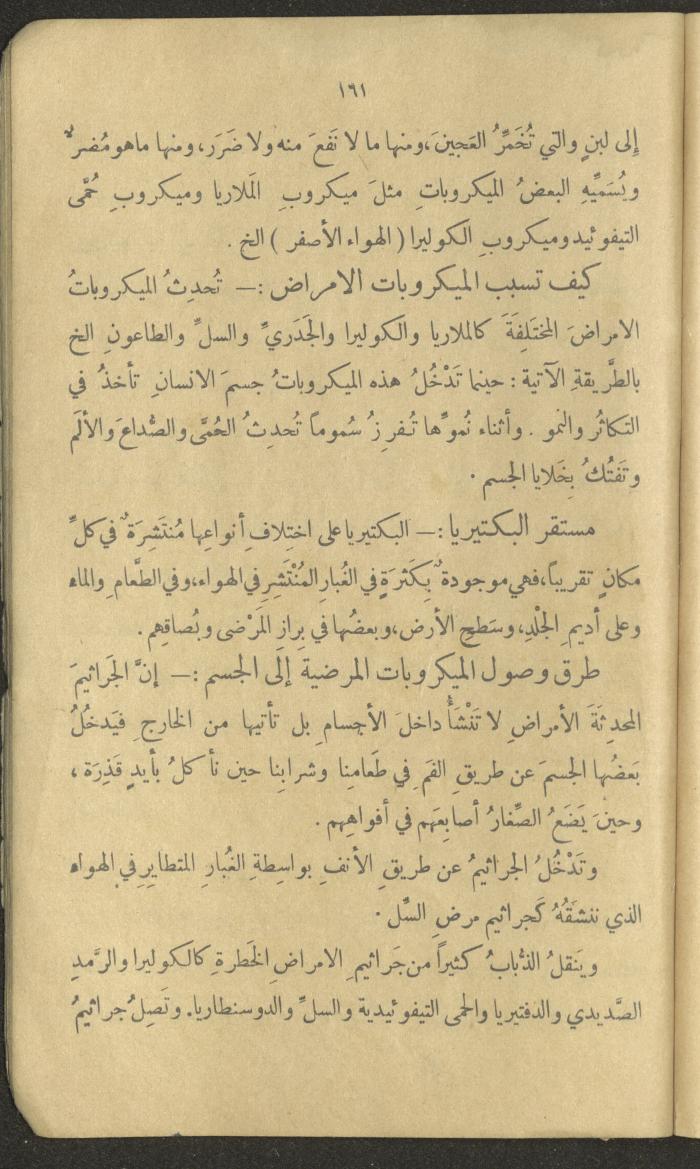 ١٦١
إِلى لبنٍ والتي تُخَمِّرُ العَجينَ،ومنها ما لا نَفعَ منه ولا ضَرَر،ومنها ماهو مُضر ٌّ
ويُسَمِّيهِ البعضُ الميكروباتِ مثلَ ميكروبِ المَلاريا وميكروبِ حُمَّى
التيفوئيد وميكروبِ الكوليرا ( الهواء الأصفر ) الخ .
كيف تسبب الميكروبات الامراض :— تُحدِثُ الميكروباتُ
الامراضَ المختَلِفَةَ كالملاريا والكوليرا والجَدَريِّ والسلِّ والطاعونِ الخ
بالطَّريقةِ الآتية : حينما تَدْخُلُ هذه الميكروباتُ جسمَ الانسانِ تأخذُ في
التكاثُرِ والنمو . وأثناء نُموِّها تُفرِزُ سُموماً تُحدِثُ الحُمَّى والصُّداعَ والألَم
وتَفتُكُ بِخَلايا الجسم .
مستقر البكتيريا :— البكتيريا على اختِلافِ أنواعِها مُنتَشِرَةٌ في كلِّ
مكانٍ تقريباً،فهي موجودةٌ بِكَثرَةٍ في الغُبارِ المُنْتَشِرِ في الهواء،وفي الطَّعامِ والماء
وعلى أديمِ الجلْدِ،وسَطحِ الأرض،وبعضُها في بِرازِ المَرْضى وبُصاقِهم .
طرق وصول الميكروبات المرضية إلى الجسم :— إنَّ الجَراثيمَ
المحدِثَةَ الأمراضِ لا تَنْشَأُ داخلَ الأجسامِ بل تأتيها من الخارجِ فيَدخُلُ
بَعضُها الجسمَ عن طريقِ الفَمِ في طَعامِنا وشرابِنا حين نأكلُ بأيدٍ قَذِرَة ،
وحينَ يَضَعُ الصِّغارُ أصابِعَهم في أفواهِهم .
وتَدْخُلُ الجراثيمُ عن طريقِ الأنفِ بواسِطةِ الغُبارِ المتطايرِ في الهواء
الذي ننشَقُهُ كَجراثيمِ مرضِ السِّل .
ويَنقلُ الذُّبابُ كثيراً من جَراثيمِ الامراضِ الخَطرةِ كالكوليرا والرَّمدِ
الصَّديدي والدفتيريا والحمى التيفوئيدية والسلِّ والدوسنطاريا. وتَصِلُ جراثيمُ